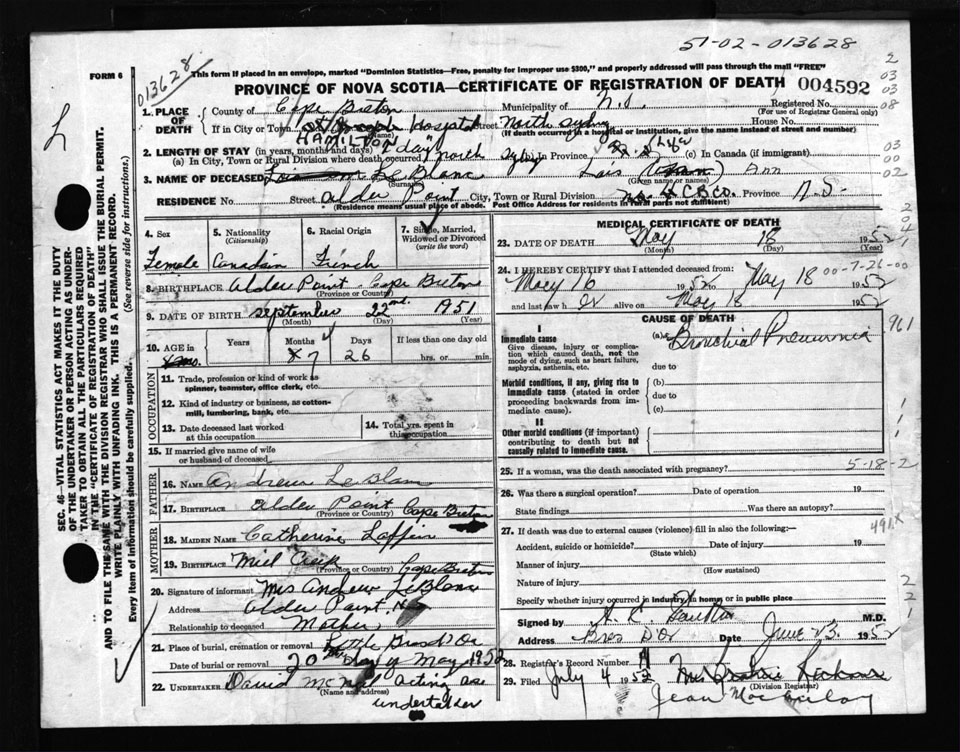 51-02-013628
FORM 6
013628
This form if placed in an envelope, marked "Dominion Statistics—Free, penalty for improper use $300," and properly addressed will pass through the mail "FREE"
PROVINCE OF NOVA SCOTIA—CERTIFICATE OF REGISTRATION OF DEATH 004592
1. PLACE OF DEATH County of Cape Breton Municipality of N.S. Registered No.
(For use of Registrar General only)
If in City or Town St Joseph Hospital Street North Sydney House No.
(Name) (If death occurred in a hospital or institution, give the name instead of street and number)
HAMILTON
2. LENGTH OF STAY (in years, months and days) 2 day
(a) In City, Town or Rural Division where death occurred North Sydney In Province (c) In Canada (if immigrant)
3. NAME OF DECEASED Le Blanc Lois Ann
(Surname) (Given name or names)
RESIDENCE No. Street Alder Point City, Town or Rural Division C B Co. Province N.S.
(Residence means usual place of abode. Post Office Address for residents in rural parts not sufficient)
4. Sex
Female
5. Nationality
(Citizenship)
Canadian
6. Racial Origin
French
7. Single, Married, Widowed or Divorced
(write the word)
8. BIRTHPLACE Alder Point Cape Breton
(Province or Country)
9. DATE OF BIRTH September 22nd 1951
(Month) (Day) (Year)
10. AGE in Years Months Days If less than one day old
7 26 hrs. or min.
OCCUPATION
11. Trade, profession or kind of work as spinner, teamster, office clerk, etc.
12. Kind of industry or business, as cotton-mill, lumbering, bank, etc.
13. Date deceased last worked at this occupation
14. Total yrs. spent in this occupation
15. If married give name of wife or husband of deceased
FATHER
16. NAME Andrew LeBlanc
17. BIRTHPLACE Alder Point Cape Breton
(Province or Country)
MOTHER
18. MAIDEN NAME Catherine Laffin
19. BIRTHPLACE Mill Creek Cape Breton
(Province or Country)
20. Signature of informant Mrs Andrew LeBlanc
Address Alder Point, N.S.
Relationship to deceased Mother
21. Place of burial, cremation or removal Little Bras D'Or
Date of burial or removal 20th day of May 1952
22. UNDERTAKER David Acting as
(Name and Address)
undertaker
MEDICAL CERTIFICATE OF DEATH
23. DATE OF DEATH May 18 1952
(Month) (Day) (Year)
24. I HEREBY CERTIFY that I attended deceased from
May 16 1952 to May 18 00-7-26-00
and last saw her alive on May 18 1952
CAUSE OF DEATH
I
Immediate cause (a) Bronchial Pneumonia
Give disease, injury or complication which caused death, not the mode of dying, such as heart failure, asphyxia, asthenia, etc. due to
Morbid conditions, if any, giving rise to immediate cause (stated in order proceeding backwards from immediate cause). (b)
due to
(c)
II
Other morbid conditions (if important) contributing to death but not causally related to immediate cause.
25. If a woman, was the death associated with pregnancy? 5-18-2
26. Was there a surgical operation? Date of operation 19
State findings Was there an autopsy?
27. If death was due to external causes (violence) fill in also the following:— 491.x
Accident, suicide or homicide? Date of injury 19
(State which)
Manner of injury
(How sustained)
Nature of injury
Specify whether injury occurred in industry, in home, or in public place
Signed by M.D.
Address Bras D'Or Date June 23. 1952
28. Registrar's Record Number
29. Filed July 4 1952
(Division Registrar)
SEC. 46—VITAL STATISTICS ACT MAKES IT THE DUTY OF THE UNDERTAKER OR PERSON ACTING AS UNDERTAKER TO OBTAIN ALL THE PARTICULARS REQUIRED IN THE "CERTIFICATE OF REGISTRATION OF DEATH" AND TO FILE THE SAME WITH THE DIVISION REGISTRAR WHO SHALL ISSUE THE BURIAL PERMIT.
WRITE PLAINLY WITH UNFADING INK. THIS IS A PERMANENT RECORD.
Every item of information should be carefully supplied. (See reverse side for instructions.)